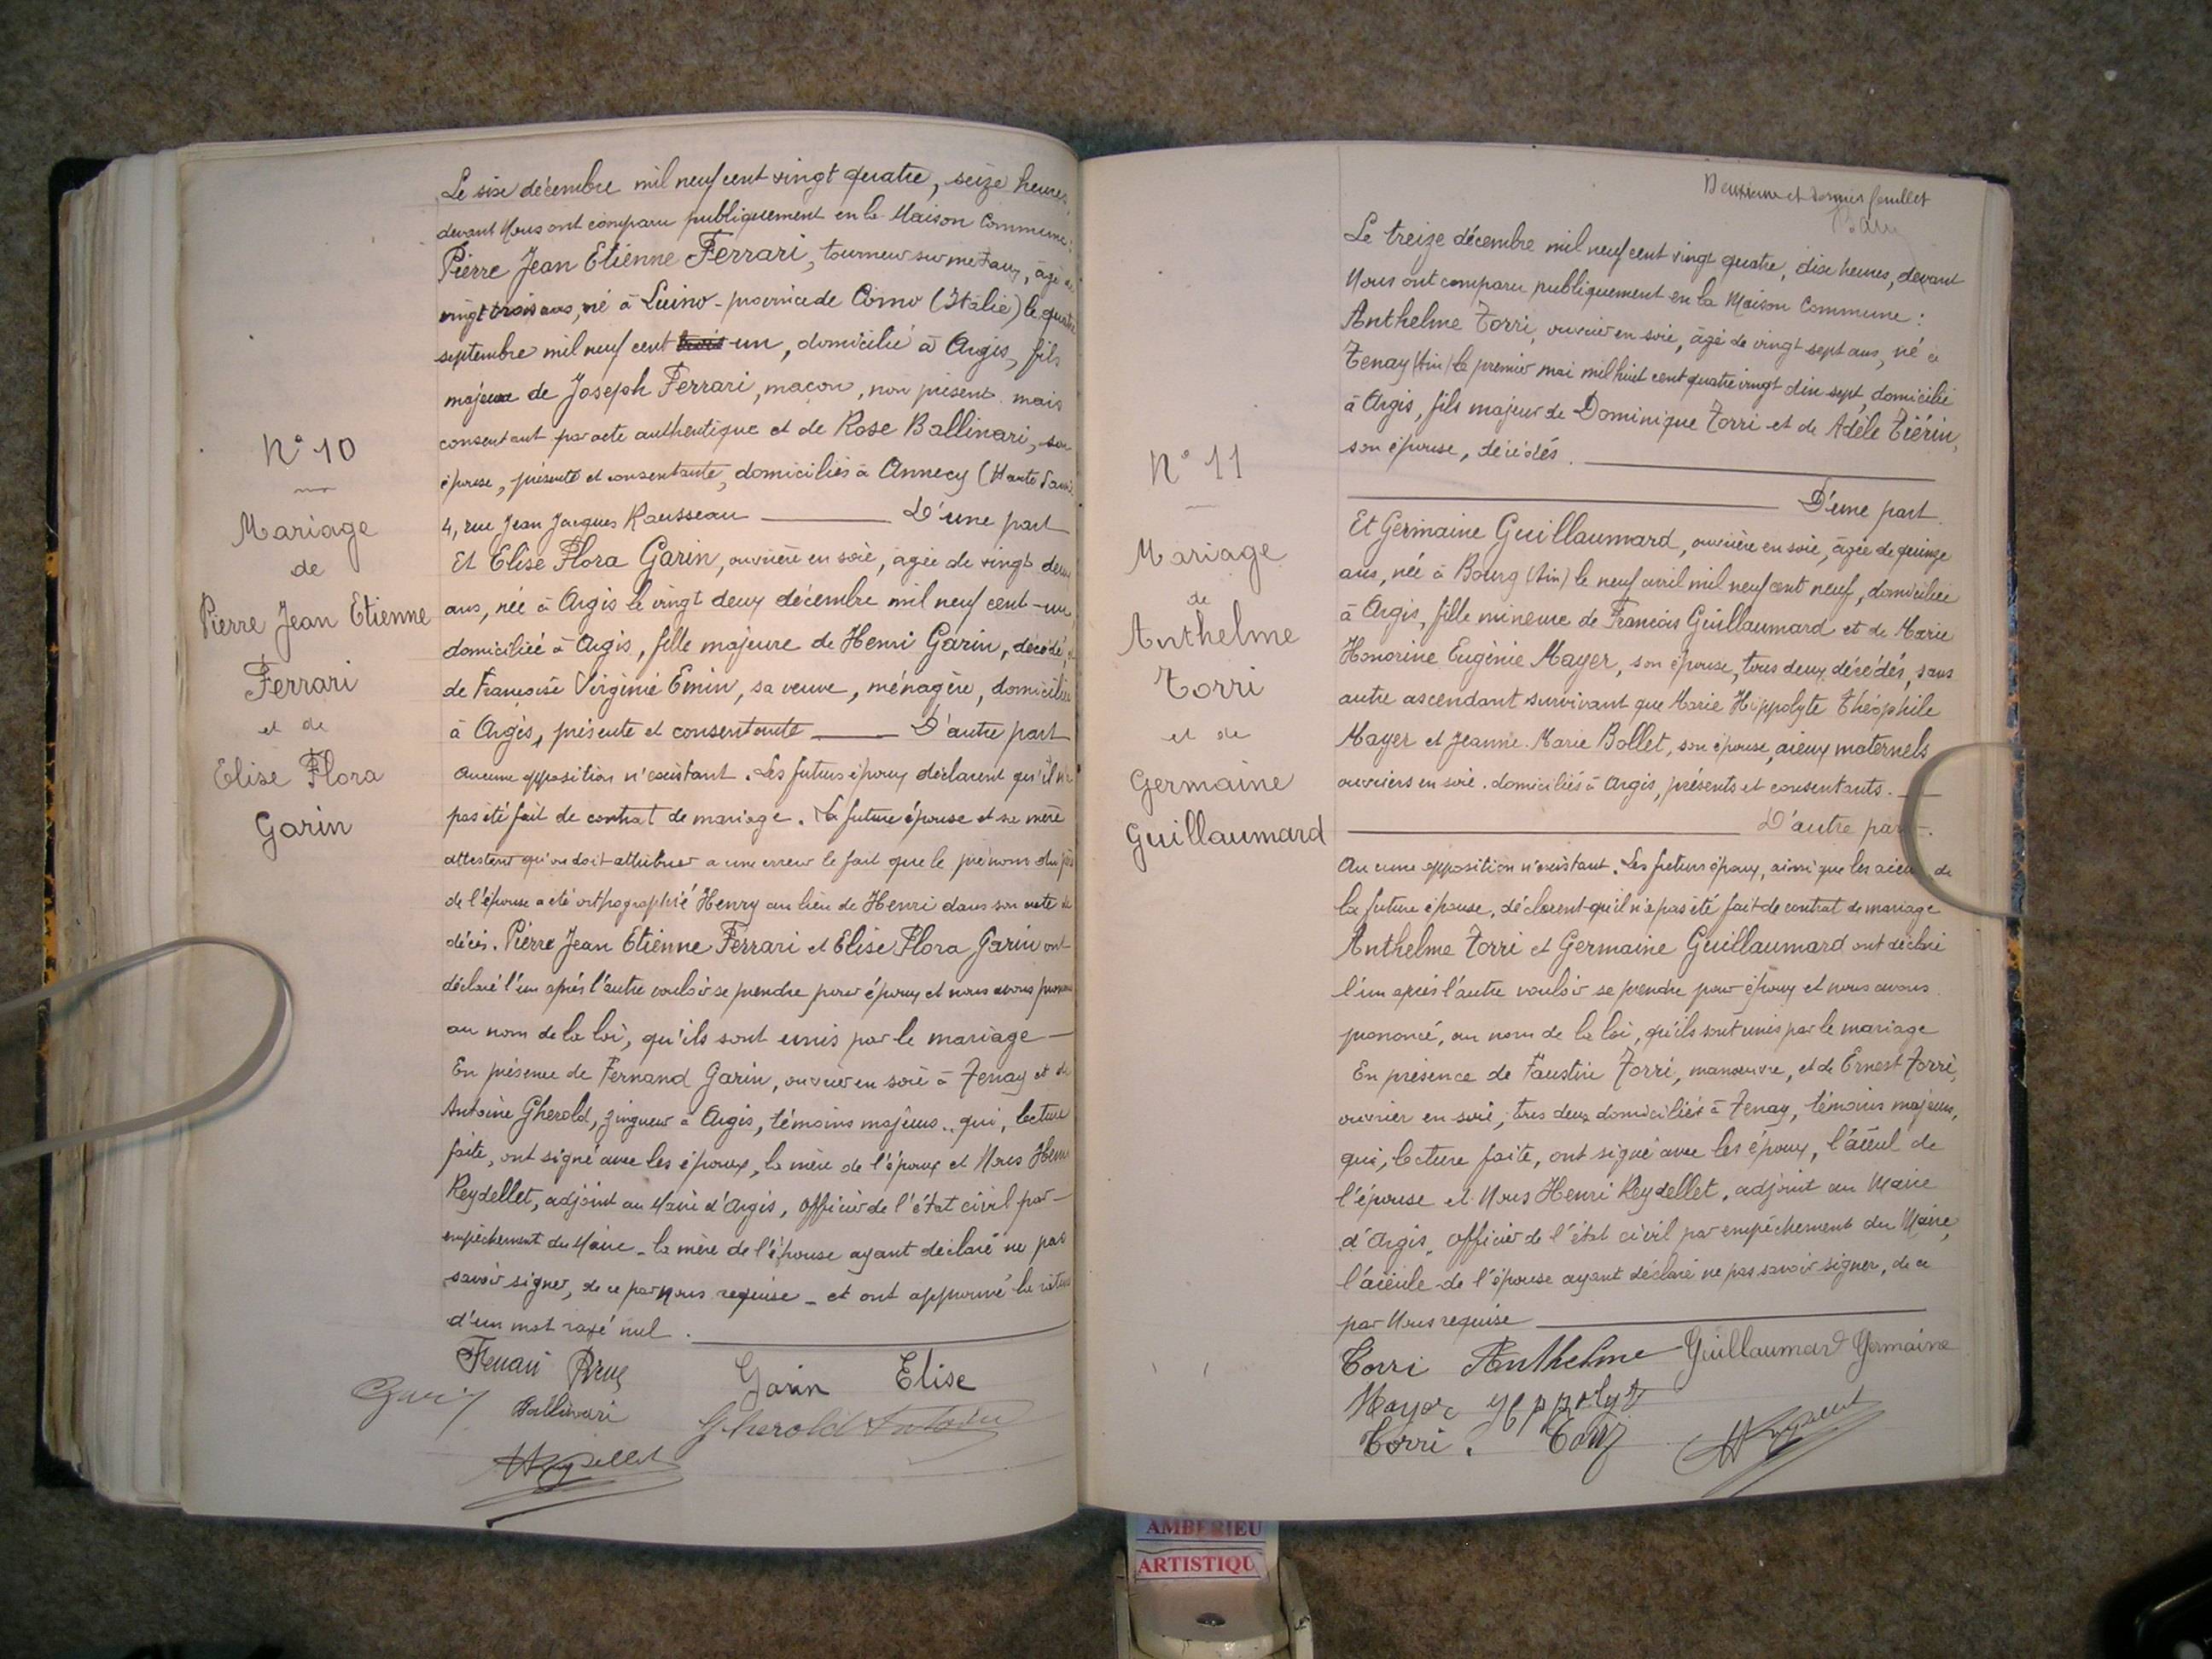 N° 10
Mariage
de
Pierre Jean Etienne
Ferrari
et de
Elise Flora
Garin
Le six décembre mil neuf cent vingt quatre, seize heures,
devant Nous ont comparu publiquement en la Maison Commune:
Pierre Jean Etienne Ferrari, tourneur sur métaux, âgé de
vingt trois ans, né à Luino - province de Como (Italie) le quatre
septembre mil neuf cent trois un, domicilié à Argis, fils
majeur de Joseph Ferrari, maçon, non présent mais
consentant par acte authentique et de Rose Ballinari, son
épouse, présente et consentante, domiciliés à Annecy (Haute Savoie
4, rue Jean Jacques Rousseau D'une part
Et Elise Flora Garin, ouvrière en soie, âgée de vingt deux
ans, née à Argis le vingt deux décembre mil neuf cent-un
domiciliée à Argis, fille majeure de Henri Garin, décédé, et
de Françoise Virginie Emin, sa veuve, ménagère, domiciliée
à Argis, présente et consentante D'autre part
Aucune opposition n'existant. Les futurs époux déclarent qu'il n'a
pas été fait de contrat de mariage. La future épouse et sa mère
attestent qu'on doit attribuer à une erreur le fait que le prénom du père
de l'épouse a été orthographié Henry au lieu de Henri dans son acte de
décès. Pierre Jean Etienne Ferrari et Elise Flora Garin ont
déclaré l'un après l'autre vouloir se prendre pour époux et nous avons prononcé
au nom de la loi, qu'ils sont unis par le mariage
En présence de Fernand Garin, ouvrier en soie à Tenay et de
Antoine Gherold, zingueur à Argis, témoins majeurs, qui, lecture
faite, ont signé avec les époux, la mère de l'époux et Nous Henri
Reydellet, adjoint au Maire d'Argis, officier de l'état civil par
empêchement du Maire - la mère de l'épouse ayant déclaré ne pas
savoir signer, de ce par nous requise - et ont approuvé la rature
d'un mot rayé nul.
Ferrari Pierre Garin Elise
Garin Ballinari Gherold Antoine
HReydellet
Deuxième et dernier feuillet
N° 11
Mariage
de
Anthelme
Torri
et de
Germaine
Guillaumard
Le treize décembre mil neuf cent vingt quatre, dix heures, devant
Nous ont comparu publiquement en la Maison Commune:
Anthelme Torri, ouvrier en soie, âgé de vingt sept ans, né à
Tenay (Ain) le premier mai mil huit cent quatre vingt dix sept, domicilié
à Argis, fils majeur de Dominique Torri et de Adèle Tiérin,
son épouse, décédés.
D'une part.
Et Germaine Guillaumard, ouvrière en soie, âgée de quinze
ans, née à Bourg (Ain) le neuf avril mil neuf cent neuf, domiciliée
à Argis, fille mineure de François Guillaumard et de Marie
Honorine Eugénie Mayer, son épouse, tous deux décédés, sans
autre ascendant survivant que Marie Hippolyte Théophile
Mayer et Jeanne Marie Bollet, son épouse, aieux maternels
ouvriers en soie, domiciliés à Argis, présents et consentants.
D'autre part.
Aucune opposition n'existant. Les futurs époux, ainsi que les aieux de
la future épouse, déclarent qu'il n'a pas été fait de contrat de mariage
Anthelme Torri et Germaine Guillaumard ont déclaré
l'un après l'autre vouloir se prendre pour époux et nous avons
prononcé, au nom de la loi, qu'ils sont unis par le mariage
En présence de Faustin Torri, manoeuvre, et de Ernest Torri,
ouvrier en soie, tous deux domiciliés à Tenay, témoins majeurs,
qui, lecture faite, ont signé avec les époux, l'aïeul de
l'épouse et Nous Henri Reydellet, adjoint au Maire
d'Argis, officier de l'état civil par empêchement du Maire,
l'aïeule de l'épouse ayant déclaré ne pas savoir signer, de ce
par Nous requise
Torri Anthelme Guillaumard Germaine
Mayer Hyppolyt
Torri. Torri HReydellet
AMBERIEU
ARTISTIQU